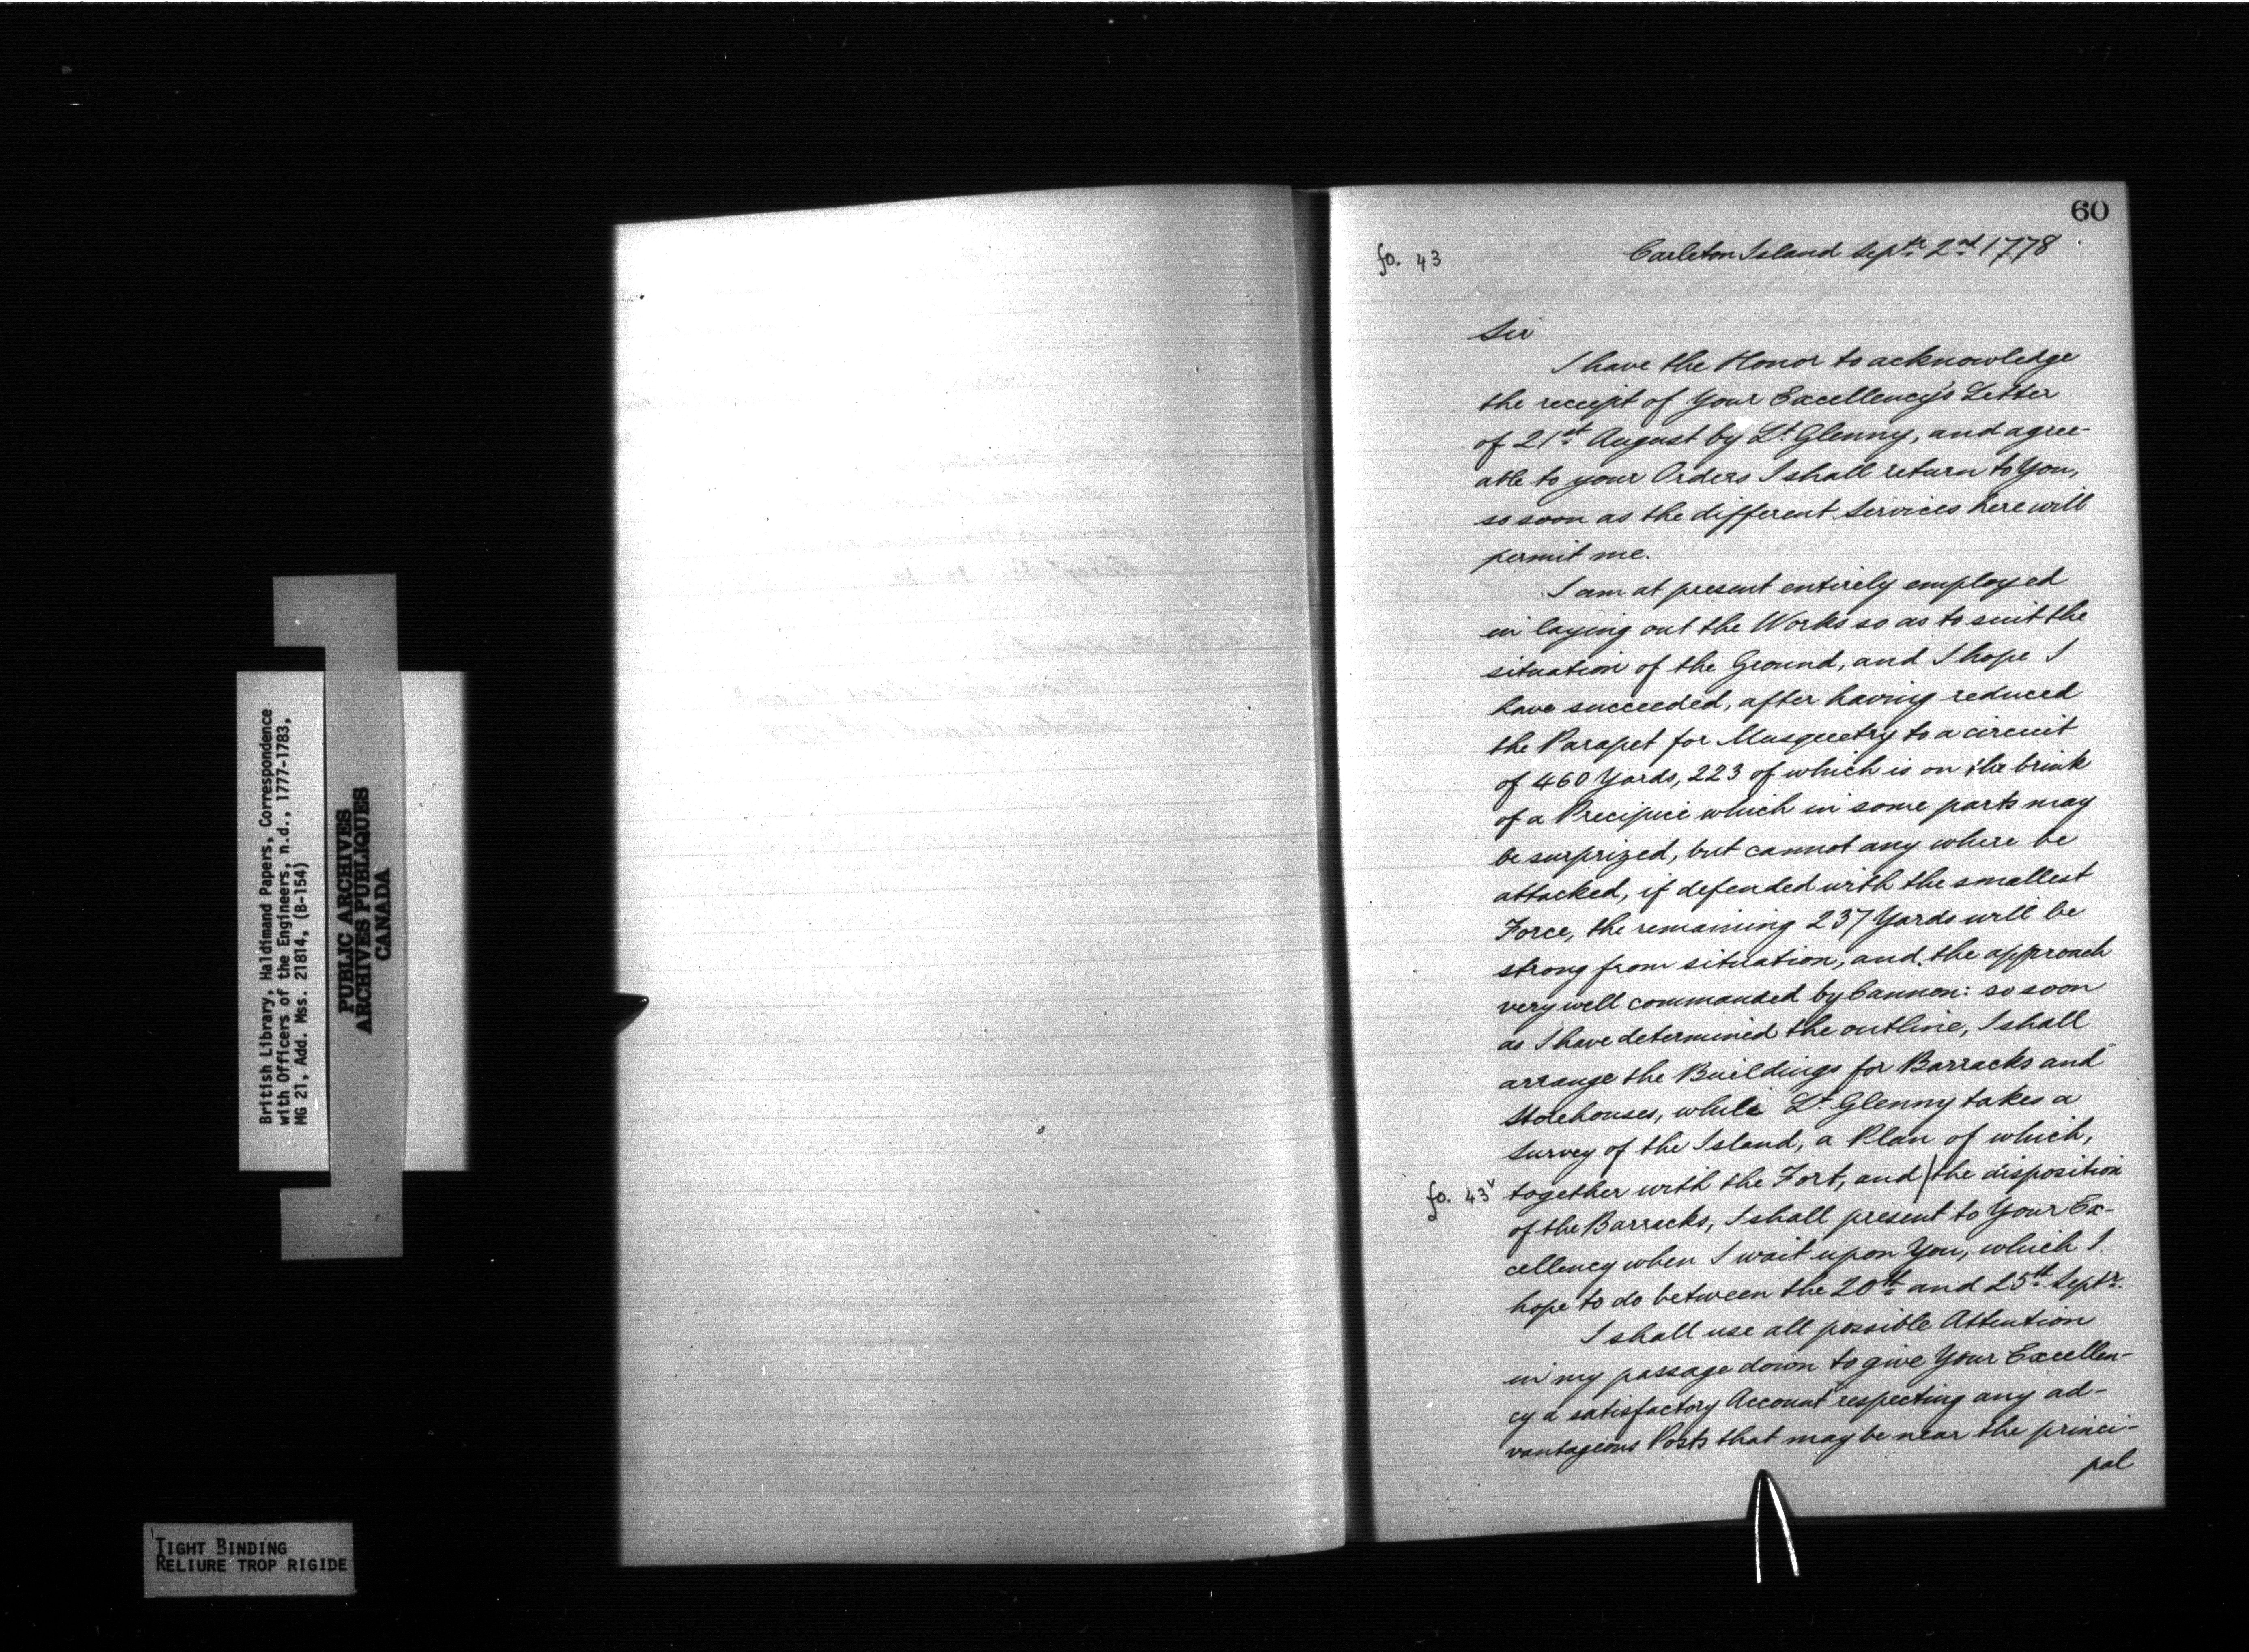 60
fo. 43
Carleton Island Septr. 2nd 1778
Sir
I have the Honor to acknowledge
the receipt of Your Excellency's Letter
of 21st August by Lt. Glenny, and agree-
able to your Orders I shall return to You,
so soon as the different Services here will
permit me.
I am at present entirely employed
in laying out the Works so as to suit the
situation of the Ground, and I hope I
have succeeded, after having reduced
the Parapet for Musquetry to a circuit
of 460 Yards, 223 of which is on the brink
of a Precipice which in some parts may
be surprized, but cannot any where be
attacked, if defended with the smallest
Force, the remaining 237 Yards will be
strong from situation, and the approach
very well commanded by Cannon: so soon
as I have determined the outline, I shall
arrange the Buildings for Barracks and
Storehouses, while Lt. Glenny takes a
Survey of the Island, a Plan of which,
fo. 43v together with the Fort, and | the disposition
of the Barracks, I shall present to Your Ex-
cellency when I wait upon You, which I
hope to do between the 20th and 25th Septr.
I shall use all possible Attention
in my passage down to give Your Excellen-
cy a satisfactory Account respecting any ad-
vantageous Posts that may be near the princi-
pal
British Library, Haldimand Papers, Correspondence
with Officers of the Engineers, n.d., 1777-1783,
MG 21, Add. Mss. 21814, (B-154)
PUBLIC ARCHIVES
ARCHIVES PUBLIQUES
CANADA
TIGHT BINDING
RELIURE TROP RIGIDE